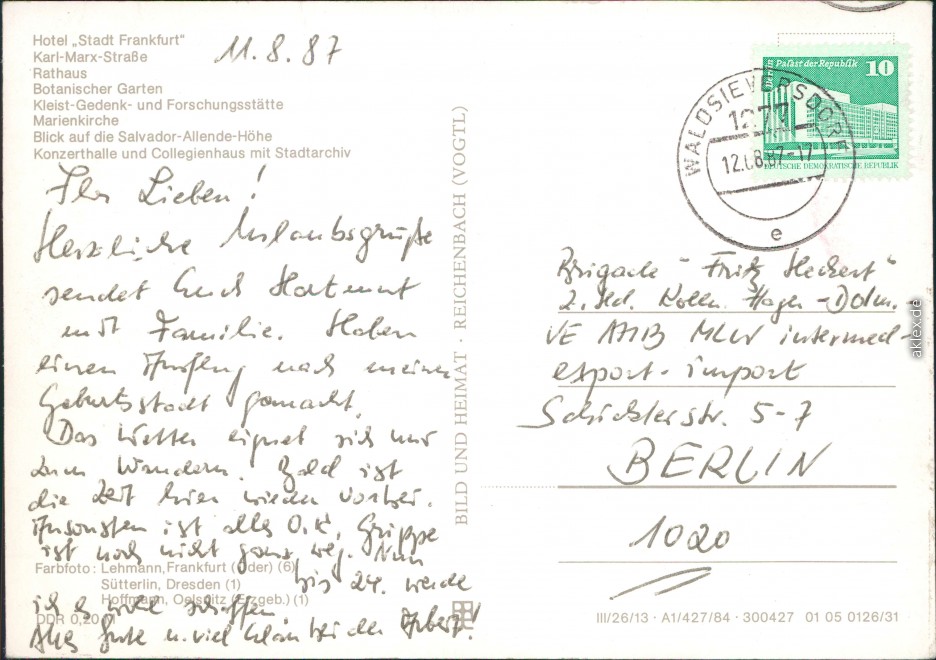 Hotel „Stadt Frankfurt"
Karl-Marx-Straße
Rathaus
Botanischer Garten
Kleist-Gedenk- und Forschungsstätte
Marienkirche
Blick auf die Salvador-Allende-Höhe
Konzerthalle und Collegienhaus mit Stadtarchiv
11.8.87
Ihr Lieben!
Herzliche Urlaubsgrüße
sendet Euch Hartmut
mit Familie. Haben
einen Ausflug nach meiner
Geburtsstadt gemacht.
Das Wetter eignet sich nur
zum Wandern. Bald ist
die Zeit hier wieder vorbei.
Ansonsten ist alles O.K. Grippe
ist noch nicht ganz weg. Nun
bis 24. werde
ich es wohl schaffen
Alles Gute u. viel bei der Arbeit!
Farbfoto: Lehmann, Frankfurt (Oder) (6)
Sütterlin, Dresden (1)
Hoffmann, Oelsnitz (Erzgeb.) (1)
DDR 0,20 M
BILD UND HEIMAT · REICHENBACH (VOGTL)
Berlin Palast der Republik 10
DEUTSCHE DEMOKRATISCHE REPUBLIK
WALDSIEVERSDORF
1277
12.08.87-17
e
Brigade "Fritz Heckert"
2. Hd. Kolln. Hager-Dolm.
VE AHB MLW intermed-
export-import
Schicklerstr. 5-7
BERLIN
1020
III/26/13 · A1/427/84 · 300427 01 05 0126/31
aklex.de